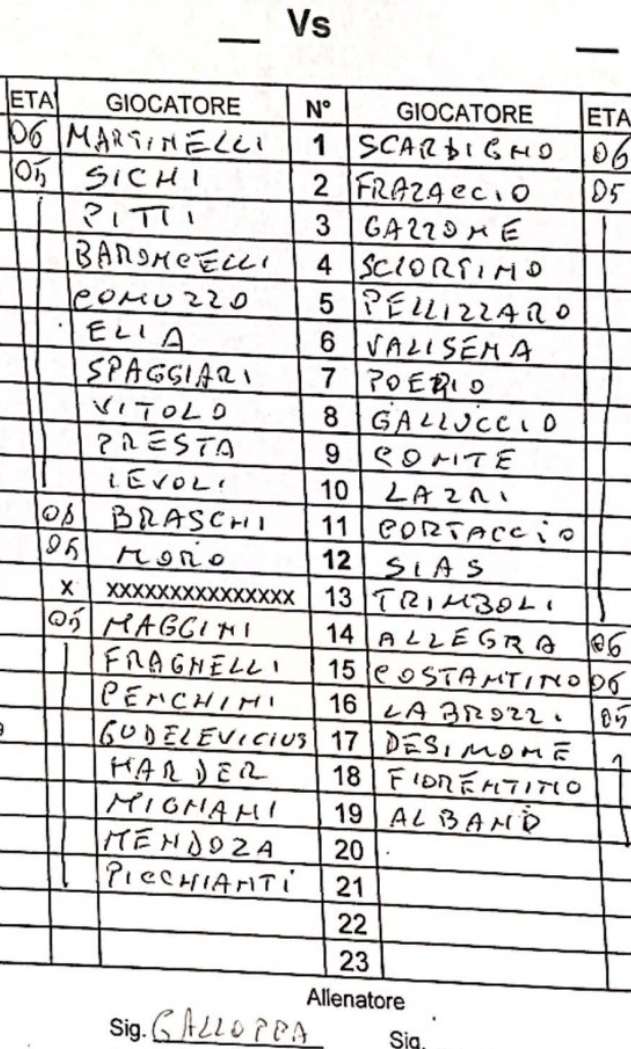 Vs
ETA GIOCATORE N° GIOCATORE ETA
06 MARTINELLI 1 SCARDIGNO 06
05 SICHI 2 FRAZACCIO 05
PITTI 3 GAZZONE
BARONCELLI 4 SCIORTINO
COMUZZO 5 PELLIZZARO
ELIA 6 VALISENA
SPAGGIARI 7 POERIO
VITOLO 8 GALLUCCIO
PRESTA 9 CONTE
IEVOLI 10 LAZRI
06 BRASCHI 11 CORTACCIO
05 MORO 12 SIAS
X XXXXXXXXXXXXXXX 13 TRIMBOLI
05 MAGGINI 14 ALLEGRA 06
FRAGNELLI 15 COSTANTINO 06
PENCHINI 16 LABROZZI 05
GUDELEVICIUS 17 DESIMONE
HARDER 18 FIORENTINO
MIGNANI 19 ALBANO
MENDOZA 20
PICCHIANTI 21
22
23
Allenatore
Sig. GALLOPPA Sig.